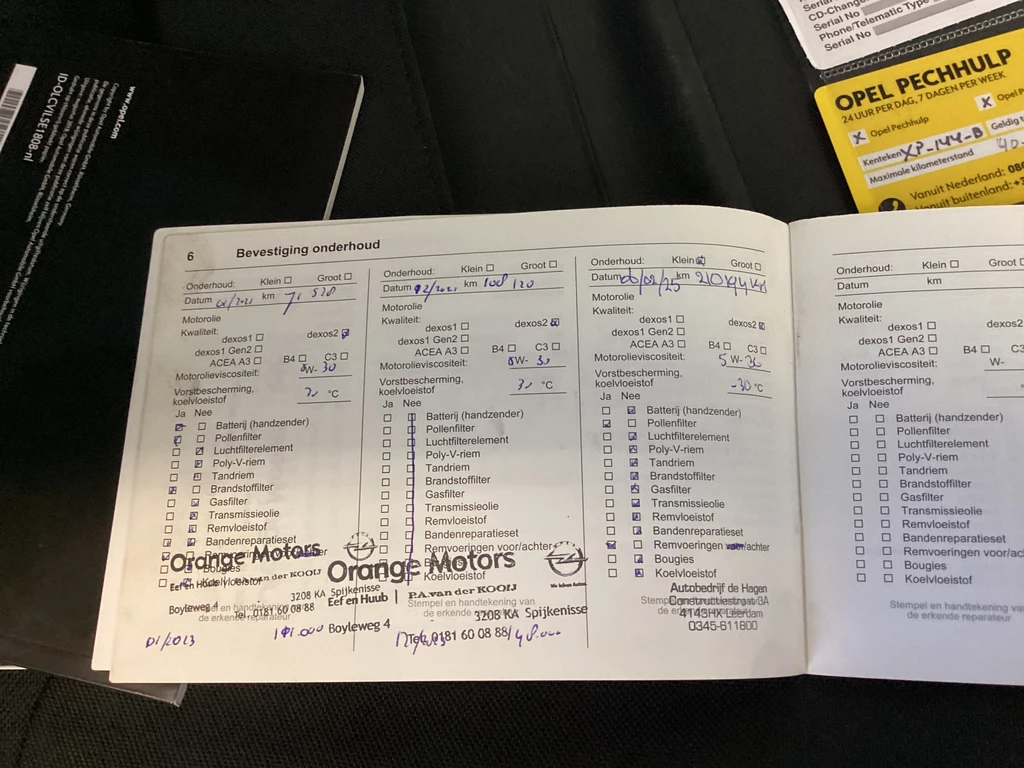 Serial
CD-Change
Serial No
Phone/Telematic Type
Serial No
OPEL PECHHULP
24 UUR PER DAG, 7 DAGEN PER WEEK
X Opel Pechhulp
X Opel P
Kenteken XP-144-B Geldig t
Maximale kilometerstand 40-
Vanuit Nederland: 088
Vanuit buitenland: +3
www.opel.com
ID-OLCVILSE1808-nl
6 Bevestiging onderhoud
Onderhoud: Klein Groot
Datum 01/2021 km 71 528
Motorolie
Kwaliteit:
dexos1 dexos2
dexos1 Gen2
ACEA A3 B4 C3
Motorolieviscositeit: 0W-30
Vorstbescherming,
koelvloeistof °C
Ja Nee
Batterij (handzender)
Pollenfilter
Luchtfilterelement
Poly-V-riem
Tandriem
Brandstoffilter
Gasfilter
Transmissieolie
Remvloeistof
Bandenreparatieset
Remvoeringen
Bougies
Koelvloeistof
Orange Motors
Eef en Huub | P.A. van der KOOIJ
3208 KA Spijkenisse
Boyleweg 4 Tel. 0181 60 08 88
Stempel en handtekening van
de erkende reparateur
01/2023
Onderhoud: Klein Groot
Datum 12/2021 km 108 120
Motorolie
Kwaliteit:
dexos1 dexos2
dexos1 Gen2
ACEA A3 B4 C3
Motorolieviscositeit: 0W-30
Vorstbescherming,
koelvloeistof °C
Ja Nee
Batterij (handzender)
Pollenfilter
Luchtfilterelement
Poly-V-riem
Tandriem
Brandstoffilter
Gasfilter
Transmissieolie
Remvloeistof
Bandenreparatieset
Remvoeringen voor/achter
Bougies
Koelvloeistof
Orange Motors
Eef en Huub | P.A. van der KOOIJ
Stempel en handtekening van
de erkende reparateur
3208 KA Spijkenisse
Boyleweg 4 Tel. 0181 60 08 88
Onderhoud: Klein Groot
Datum 06/02/25 km 210
Motorolie
Kwaliteit:
dexos1 dexos2
dexos1 Gen2
ACEA A3 B4 C3
Motorolieviscositeit: 5W-30
Vorstbescherming,
koelvloeistof -30 °C
Ja Nee
Batterij (handzender)
Pollenfilter
Luchtfilterelement
Poly-V-riem
Tandriem
Brandstoffilter
Gasfilter
Transmissieolie
Remvloeistof
Bandenreparatieset
Remvoeringen voor/achter
Bougies
Koelvloeistof
Autobedrijf de Hagen
Constructiestraat 3A
4143HX Leerdam
0345-611800
Onderhoud: Klein Groot
Datum km
Motorolie
Kwaliteit:
dexos1 dexos2
dexos1 Gen2
ACEA A3 B4 C3
Motorolieviscositeit: W-
Vorstbescherming,
koelvloeistof
Ja Nee
Batterij (handzender)
Pollenfilter
Luchtfilterelement
Poly-V-riem
Tandriem
Brandstoffilter
Gasfilter
Transmissieolie
Remvloeistof
Bandenreparatieset
Remvoeringen voor/ac
Bougies
Koelvloeistof
Stempel en handtekening van
de erkende reparateur